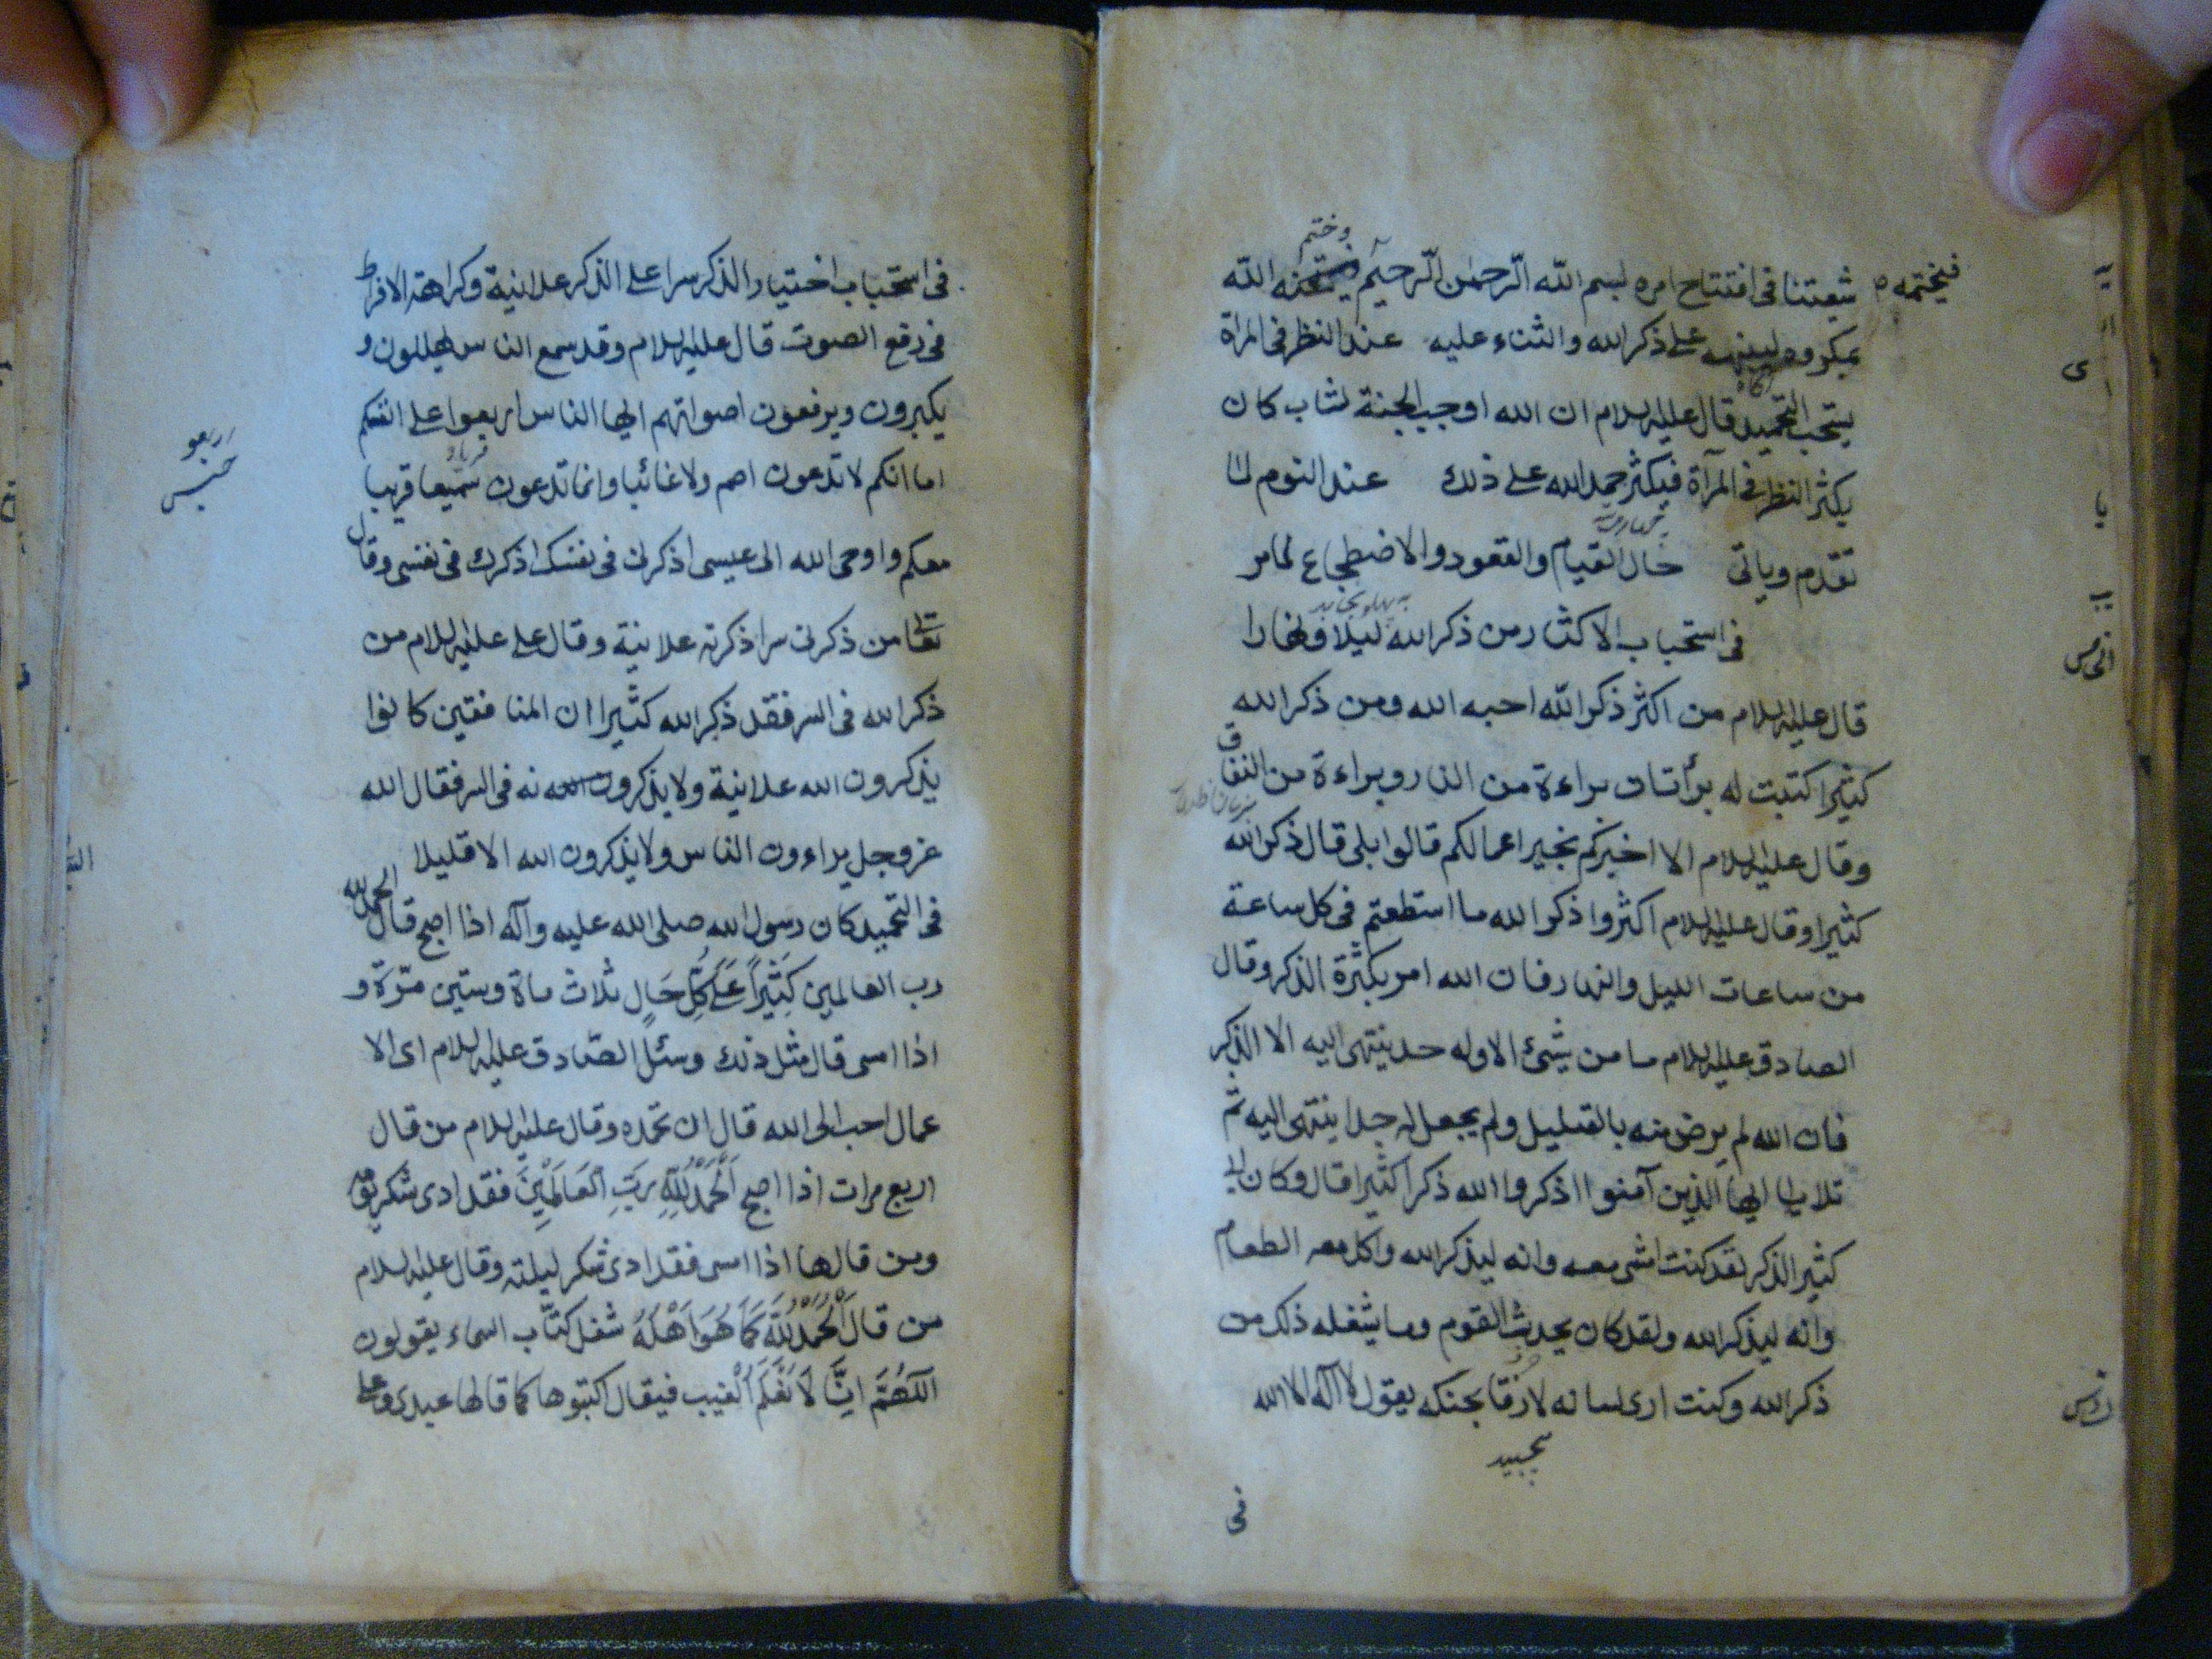 شيعتنا فى افتتاح امره بسم الله الرحمن الرحيم فيمتحنه الله
بمكروه لينبهه على ذكر الله والثناء عليه عند النظر فى المرآة
يستحب التحميد قال عليه السلام ان الله اوجب الجنة لشاب كان
يكثر النظر فى المرآة فيكثر حمد الله على ذلك عند النوم لما
تقدم وياتى حال القيام والقعود والاضطجاع لما مر
فى استحباب الاكثار من ذكر الله ليلا ونهارا
قال عليه السلام من اكثر ذكر الله احبه الله ومن ذكر الله
كثيرا كتبت له برأتان براءة من النار وبراءة من النفاق
وقال عليه السلام الا اخبركم بخير اعمالكم قالوا بلى قال ذكر الله
كثيرا وقال عليه السلام اكثروا ذكر الله ما استطعتم فى كل ساعة
من ساعات الليل والنهار فان الله امر بكثرة الذكر وقال
الصادق عليه السلام ما من شيئ الا وله حد ينتهى اليه الا الذكر
فان الله لم يرض منه بالقليل ولم يجعل له حدا ينتهى اليه ثم
تلا يا ايها الذين آمنوا اذكروا الله ذكرا كثيرا قال وكان ابى
كثير الذكر لقد كنت امشى معه وانه ليذكر الله واكل معه الطعام
وانه ليذكر الله ولقد كان يحدث القوم وما يشغله ذلك من
ذكر الله وكنت ارى لسانه لازقا بحنكه يقول لا اله الا الله
فى
فيختمه
وختم
فى استحباب اختيار الذكر سرا على الذكر علانية وكراهة الافراط
فى رفع الصوت قال عليه السلام وقد سمع الناس يهللون و
يكبرون ويرفعون اصواتهم ايها الناس اربعوا على انفسكم
اما انكم لا تدعون اصم ولا غائبا وانما تدعون سميعا قريبا
معكم واوحى الله الى عيسى اذكرنى فى نفسك اذكرك فى نفسى وقال
تعالى من ذكرنى سرا ذكرته علانية وقال على عليه السلام من
ذكر الله فى السر فقد ذكر الله كثيرا ان المنافقين كانوا
يذكرون الله علانية ولا يذكرونه فى السر فقال الله
عز وجل يراءون الناس ولا يذكرون الله الا قليلا
فى التحميد كان رسول الله صلى الله عليه وآله اذا اصبح قال الحمد لله
رب العالمين كَثِيراً عَلَى كُلِّ حَالٍ ثلاث ماة وستين مرّة و
اذا امسى قال مثل ذلك وسئل الصّادق عليه السلام اى الا
عمال احب الى الله قال ان تحمده وقال عليه السلام من قال
اربع مرات اذا اصبح اَلْحَمْدُ لِلّٰهِ رَبِّ الْعَالَمِينَ فقد ادى شكر يومه
ومن قالها اذا امسى فقد ادى شكر ليلته وقال عليه السلام
من قال اَلْحَمْدُ لِلّٰهِ كَمَا هُوَ اَهْلُهُ شغل كتّاب السماء يقولون
اَللّٰهُمَّ اِنَّا لَا نَعْلَمُ الْغَيب فيقال اكتبوها كما قالها عبدى وعلى
اربعو